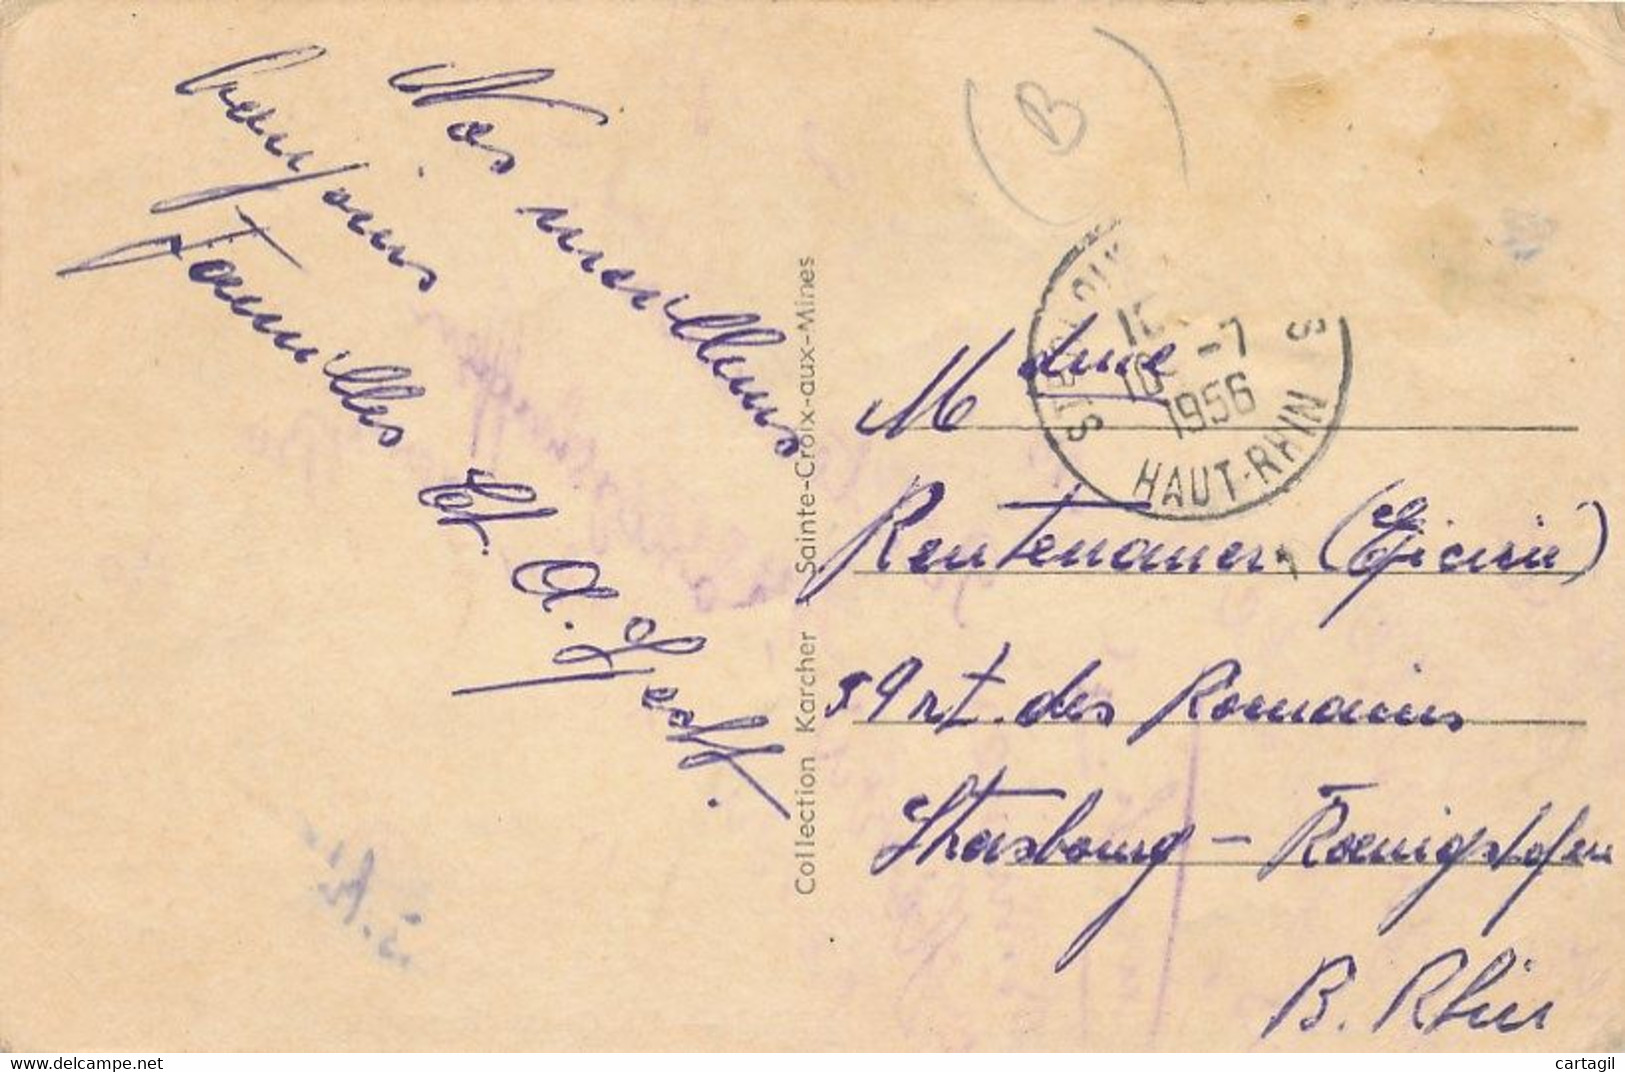 Nos meilleurs
bonjours
Familles Ch. A. Hestt.
Collection Karcher Sainte-Croix-aux-Mines
(B)
STE CROIX S
10 -7
1956
HAUT-RHIN
Mdme
Rentenauer (Epicerie)
59 rt. des Romains
Strasbourg - Koenigshofen
B. Rhin
cartagil